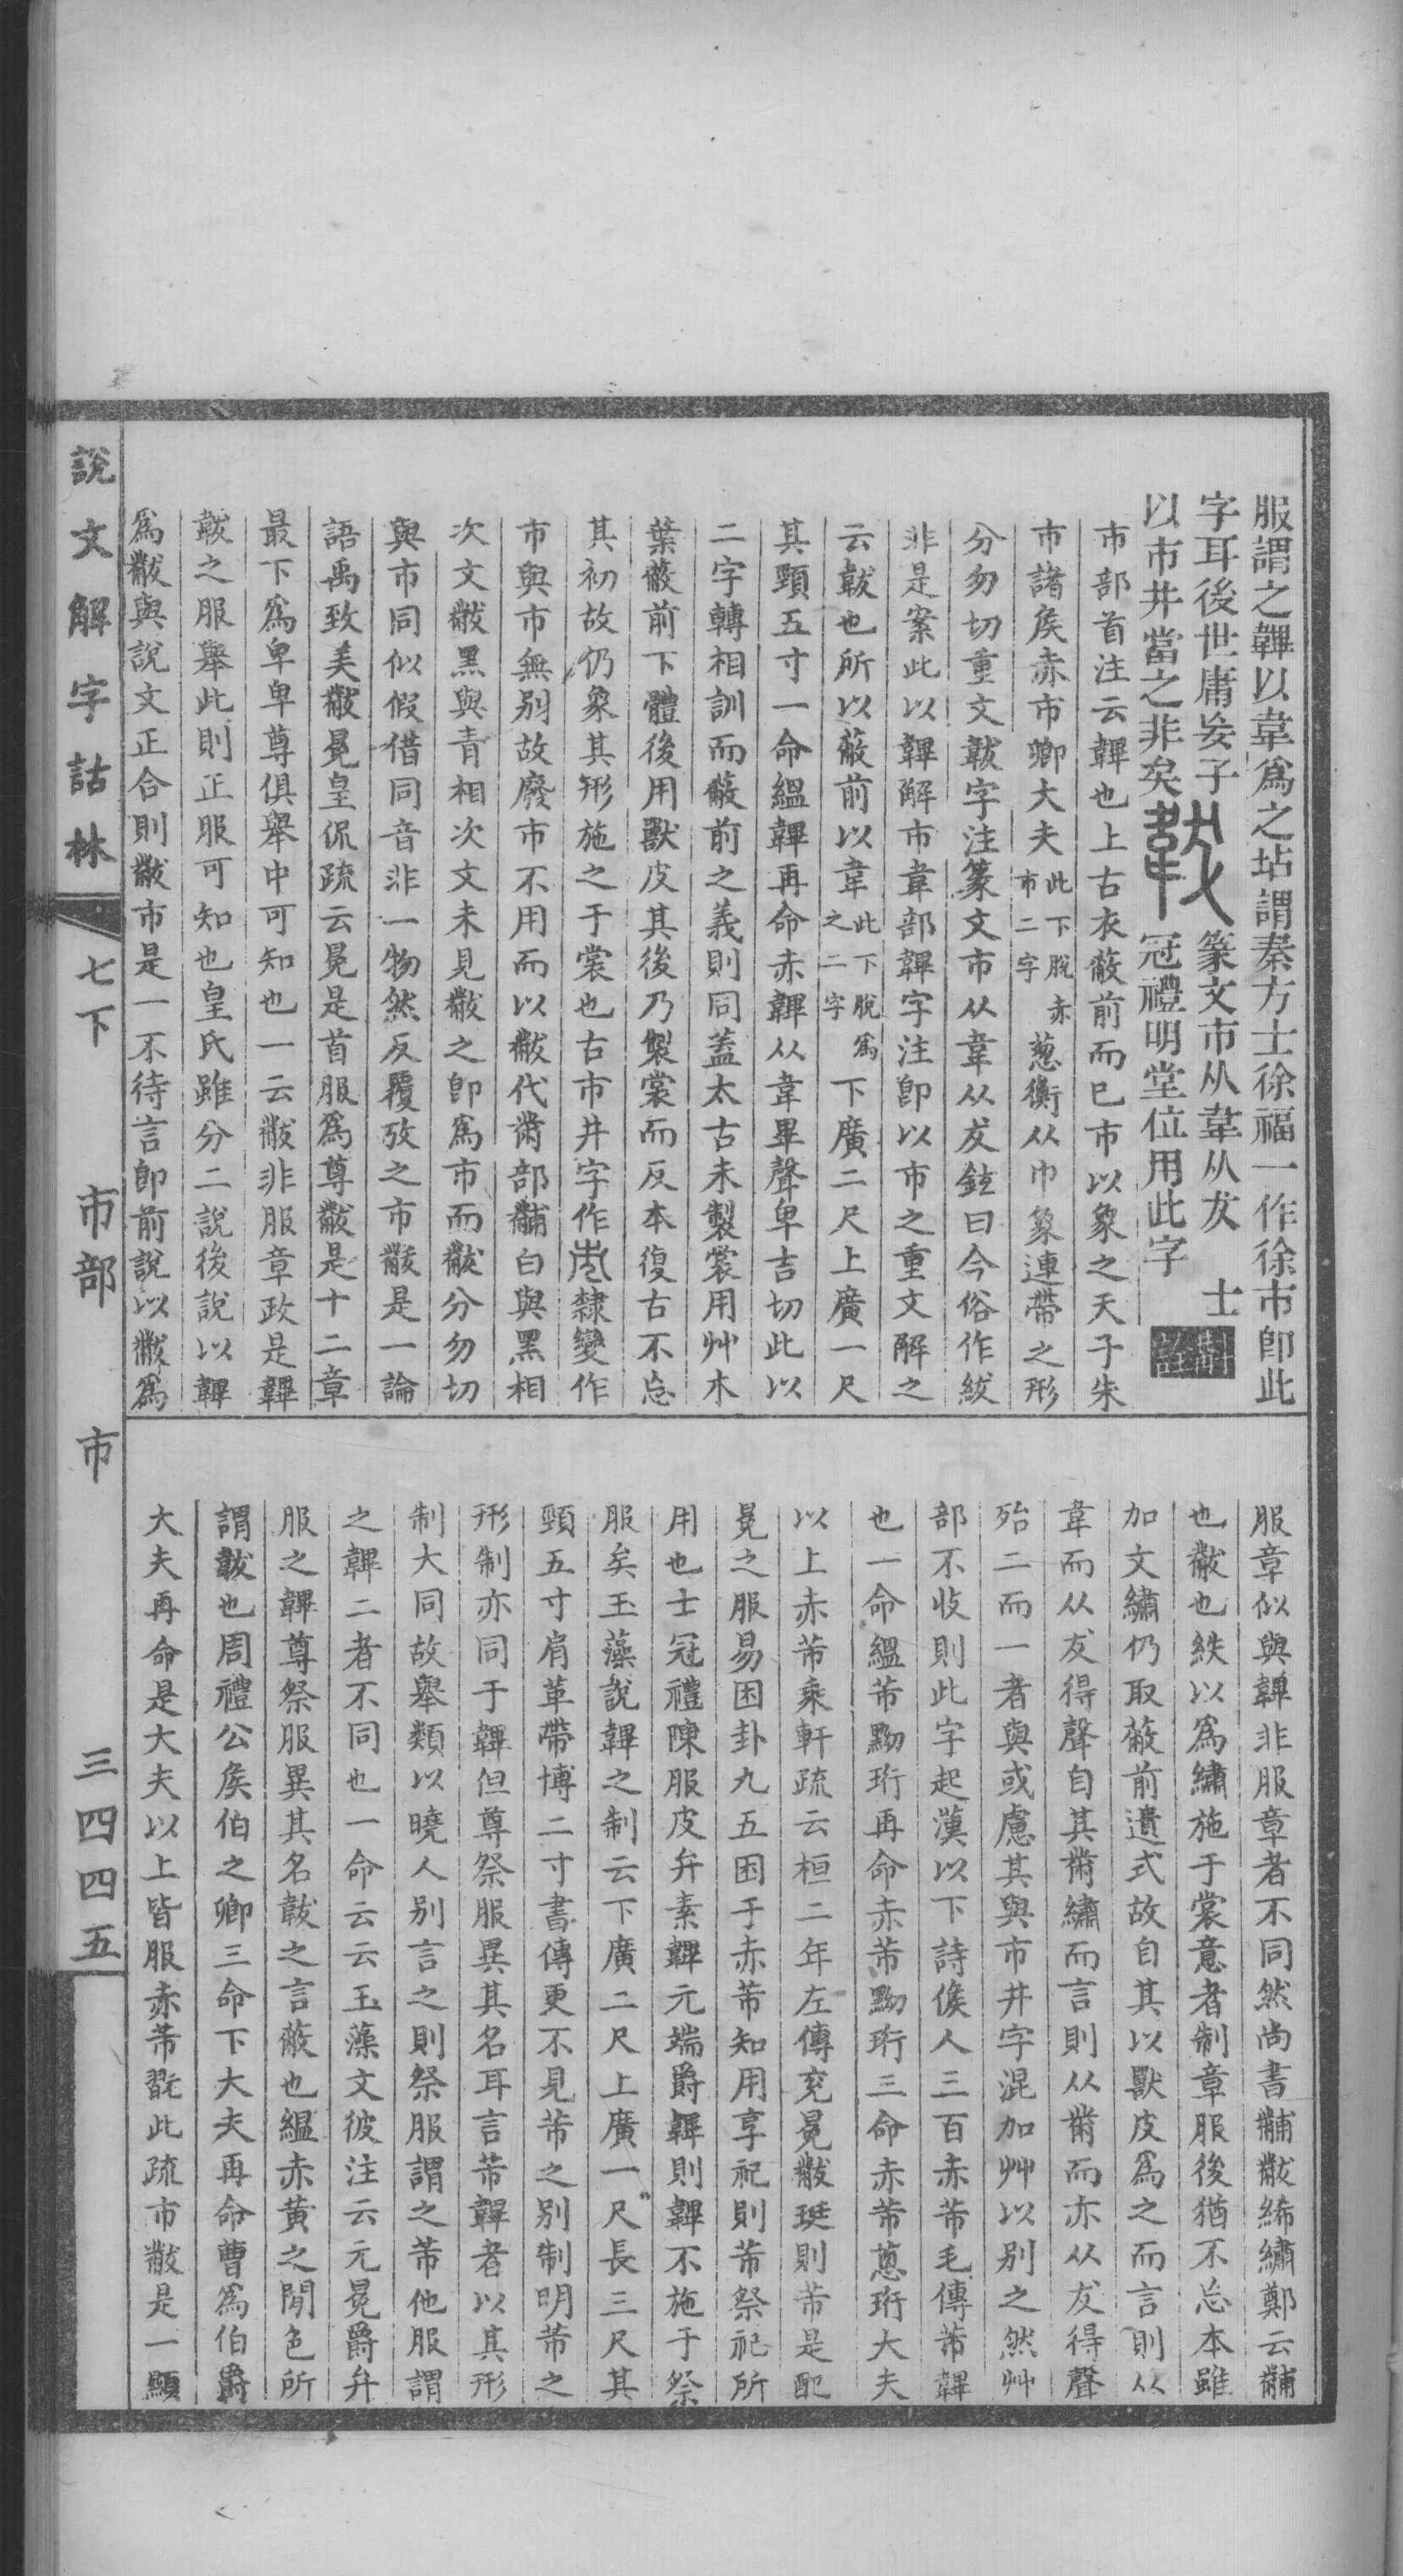 服謂之韠以韋爲之坫謂秦方士徐福一作徐巿卽此
字耳後世庸妄子
以巿井當之非矣
篆文巿从韋从犮 士
冠禮明堂位用此字
巿部首注云韠也上古衣蔽前而已巿以象之天子朱
巿諸矦赤巿卿大夫此下脫赤巿二字葱衡从巾象連帶之形
分勿切重文韍字注篆文巿从韋从犮鉉曰今俗作紱
非是案此以韠解巿韋部韠字注卽以巿之重文解之
云韍也所以蔽前以韋此下脫爲之二字下廣二尺上廣一尺
其頸五寸一命縕韠再命赤韠从韋畢聲卑吉切此以
二字轉相訓而蔽前之義則同蓋太古未製裳用艸木
葉蔽前下體後用獸皮其後乃製裳而反本復古不忘
其初故仍象其形施之于裳也古市井字作隸變作
市與巿無别故廢巿不用而以黻代黹部黼白與黑相
次文黻黑與青相次文未見黻之卽爲巿而黻分勿切
與巿同似假借同音非一物然反覆攷之巿黻是一論
語禹致美黻冕皇侃疏云冕是首服爲尊黻是十二章
最下爲卑卑尊俱舉中可知也一云黻非服章政是韠
韍之服舉此則正服可知也皇氏雖分二說後說以韠
爲黻與說文正合則黻巿是一不待言卽前說以黻爲
服章似與韠非服章者不同然尚書黼黻絺繡鄭云黼
也黻也紩以爲繡施于裳意者制章服後猶不忘本雖
加文繡仍取蔽前遺式故自其以獸皮爲之而言則从
韋而从犮得聲自其黹繡而言則从黹而亦从犮得聲
殆二而一者與或慮其與市井字混加艸以别之然艸
部不收則此字起漢以下詩俟人三百赤芾毛傳芾韠
也一命縕芾黝珩再命赤芾黝珩三命赤芾蔥珩大夫
以上赤芾乘軒疏云桓二年左傳衮冕黻珽則芾是配
冕之服易困卦九五困于赤芾知用享祀則芾祭祀所
用也士冠禮陳服皮弁素韠元端爵韠則韠不施于祭
服矣玉藻說韠之制云下廣二尺上廣一尺長三尺其
頸五寸肩革帶博二寸書傳更不見芾之别制明芾之
形制亦同于韠但尊祭服異其名耳言芾韠者以其形
制大同故舉類以曉人别言之則祭服謂之芾他服謂
之韠二者不同也一命云云玉藻文彼注云元冕爵弁
服之韠尊祭服異其名韍之言蔽也縕赤黃之閒色所
謂韍也周禮公矦伯之卿三命下大夫再命曹爲伯爵
大夫再命是大夫以上皆服赤芾翫此疏巿黻是一顯
說文解字詁林 七下 巿部 巿 三四四五